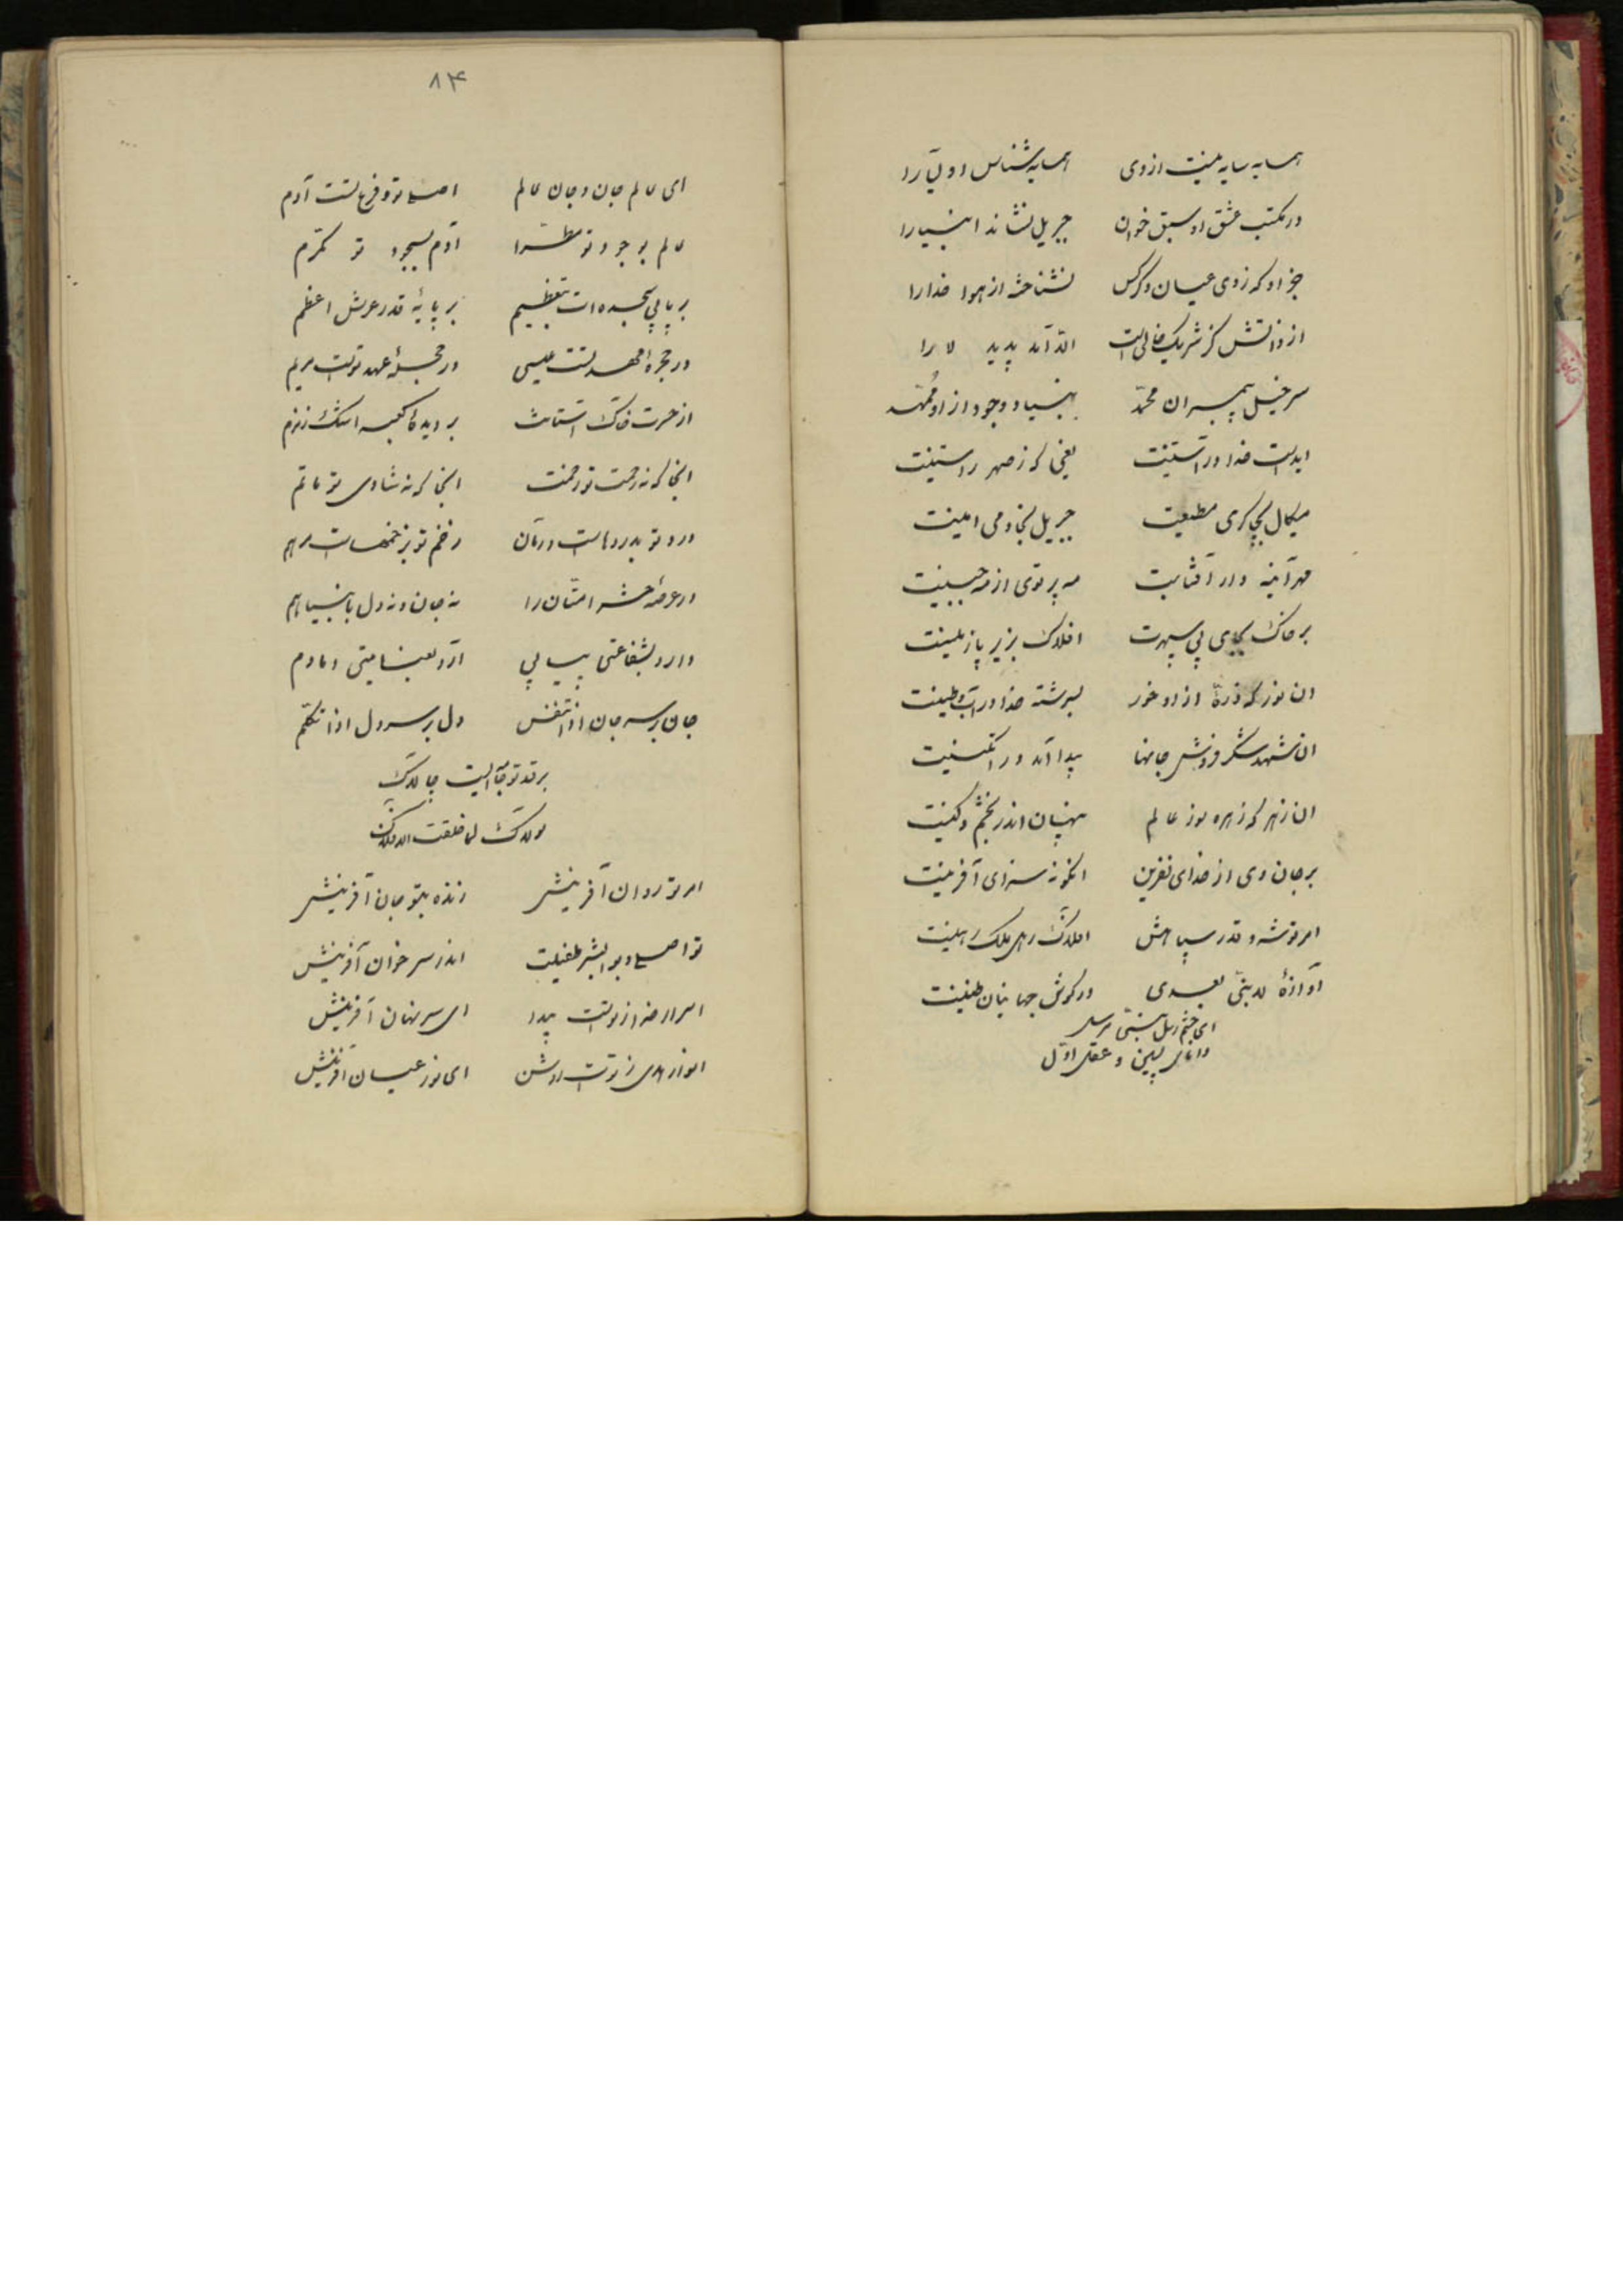 همسایه سایه نیست از وی همسایه شناس اولیا را
در مکتب عشق او سبق خوان جبریل نشاند انبیا را
جز او که ز وی عیان و کس نشناخته از هوا خدا را
از ذاتش کز شریک خالیست الا آمد پدید لا را
سرخیل پیمبران محمد بنیاد وجود از او ممهد
ای دست خدا در آستینت یعنی که ز مهر راستینت
میکال بچاکری مطیعت جبریل بخادمی امینت
مهر آینه دار آفتابت مه پرتوی از مه جبینت
بر خاک بجای پی سپهرت افلاک بزیر پا زمینت
ان نور که ذرهٔ از او خور بسرشته خدا در آب و طینت
ان شهد شکر فروش جانها پیدا آمد در انگبینت
ان زهر که زهره سوز عالم پنهان اندر بخشم و کینت
بر جان وی از خدای نفرین انگونه سزای آفرینت
امر تو شه و قدر سپاهش افلاک رهی ملک رهینت
آوازهٔ لا نبی بعدی در گوش جهانیان طنینت
ای ختم رسل نبی مرسل
دانای پسین و عقل اول
۸۴
ای عالم جان و جان عالم اصلی تو و فرع تست آدم
عالم بوجود تو مطرا آدم بسجود تو مکرم
بر پا پی سجده ات بتعظیم بر پایهٔ قدر عرش اعظم
در حجرهٔ مهد تست عیسی در حجلهٔ عهد تو است مریم
از حسرت خاک آستانت بر دیده کعبه اشک زمزم
انجا که نه رحمت تو زحمت انجا که نه شادی تو ماتم
درد تو بدردهاست درمان زخم تو بزخمهاست مرهم
در عرصهٔ حشر امتان را نه جان و نه دل با نبیا هم
دارد بشفاعتی پیاپی آرد بعنایتی دمادم
جان بر سر جان اذا تنفس دل بر سر دل اذا تکلم
بر قد تو جامه ایست چالاک
لولاک لما خلقت الافلاک
امر تو روان آفرینش زنده بتو جان آفرینش
تو اصلی و بوالبشر طفیلت اندر سر خوان آفرینش
اسرار خدا ز تو است پیدا ای سر نهان آفرینش
انوار هدی ز تو است روشن ای نور عیان آفرینش